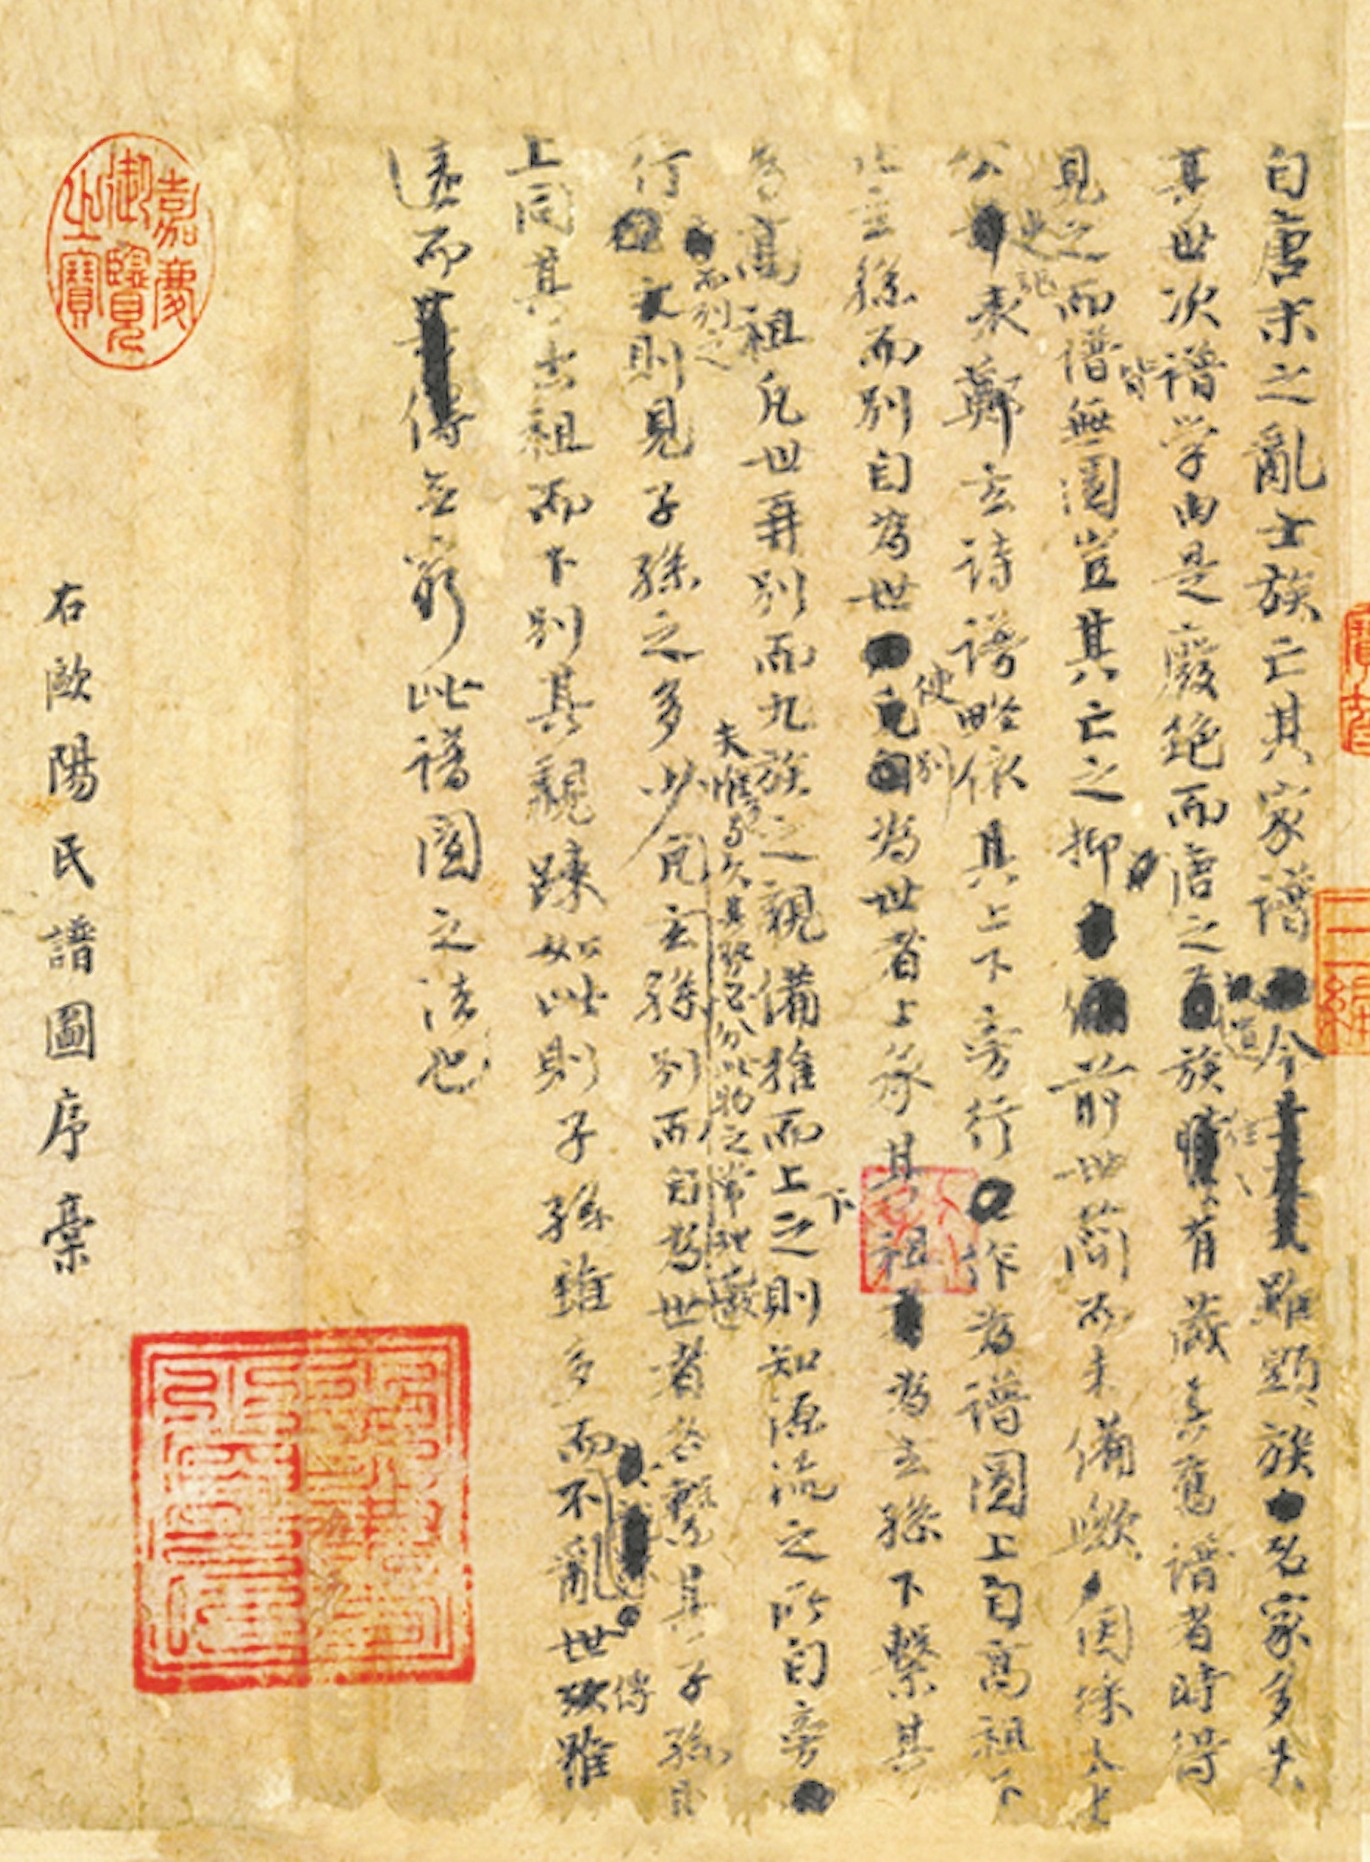 自唐末之亂士族亡其家譜今雖顯族名家多失
其世次譜学由是廢絶而唐之遺族往往有藏其舊譜者時得
見之而譜皆無圖豈其亡之抑前世簡而未備歟因採太史
公史記表鄭玄詩譜略依其上下旁行作為譜圖上自高祖下
止玄孫而別自為世使別為世者上承其祖為玄孫下繫其
孫為高祖凡世再別而九族之親備推而上下之則知源流之所自旁
行而列之則見子孫之多少夫惟多與久其勢必分此物之常理也凡玄孫別而自為世者各繫其子孫則
上同其出祖而下別其親疎如此則子孫雖多而不亂世傳雖
遠而無窮此譜圖之法也
右歐陽氏譜圖序稾
嘉慶御覽之寶